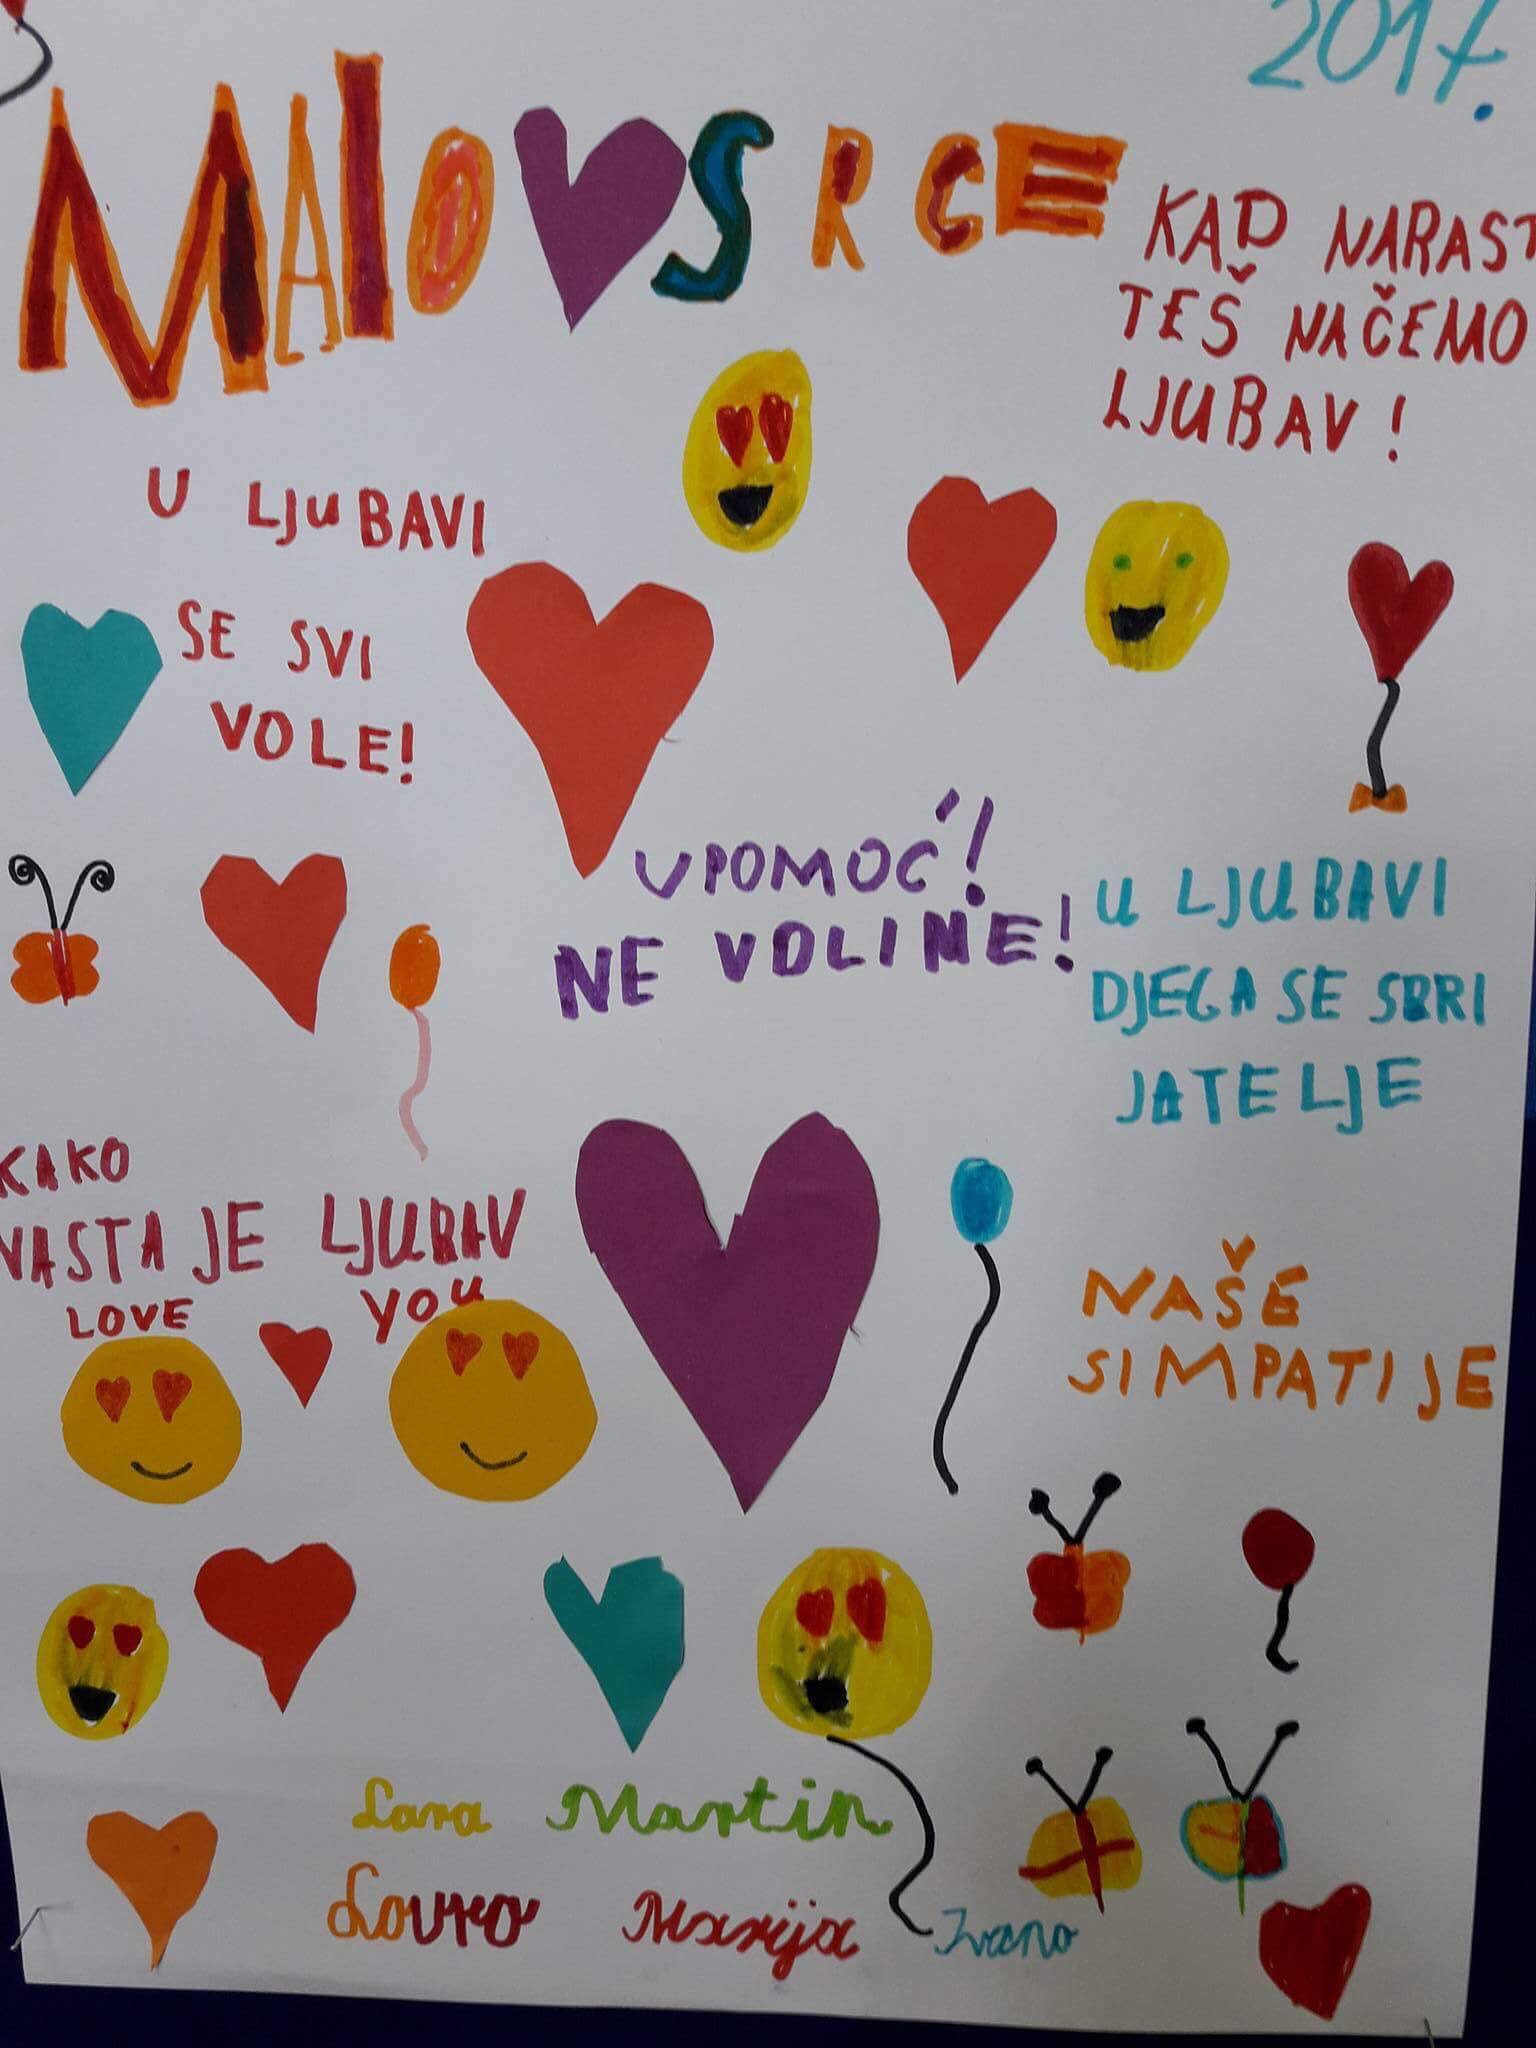 2017.
MALO SRCE
KAD NARAST
TEŠ NAČEMO
LJUBAV!
U LJUBAVI
SE SVI
VOLE!
UPOMOĆ!
NE VOLI ME!
U LJUBAVI
DJECA SE SPRI
JATELJE
KAKO
NASTAJE LJUBAV
LOVE YOU
NAŠE
SIMPATIJE
Lara Martin
Lovro Marija Ivano